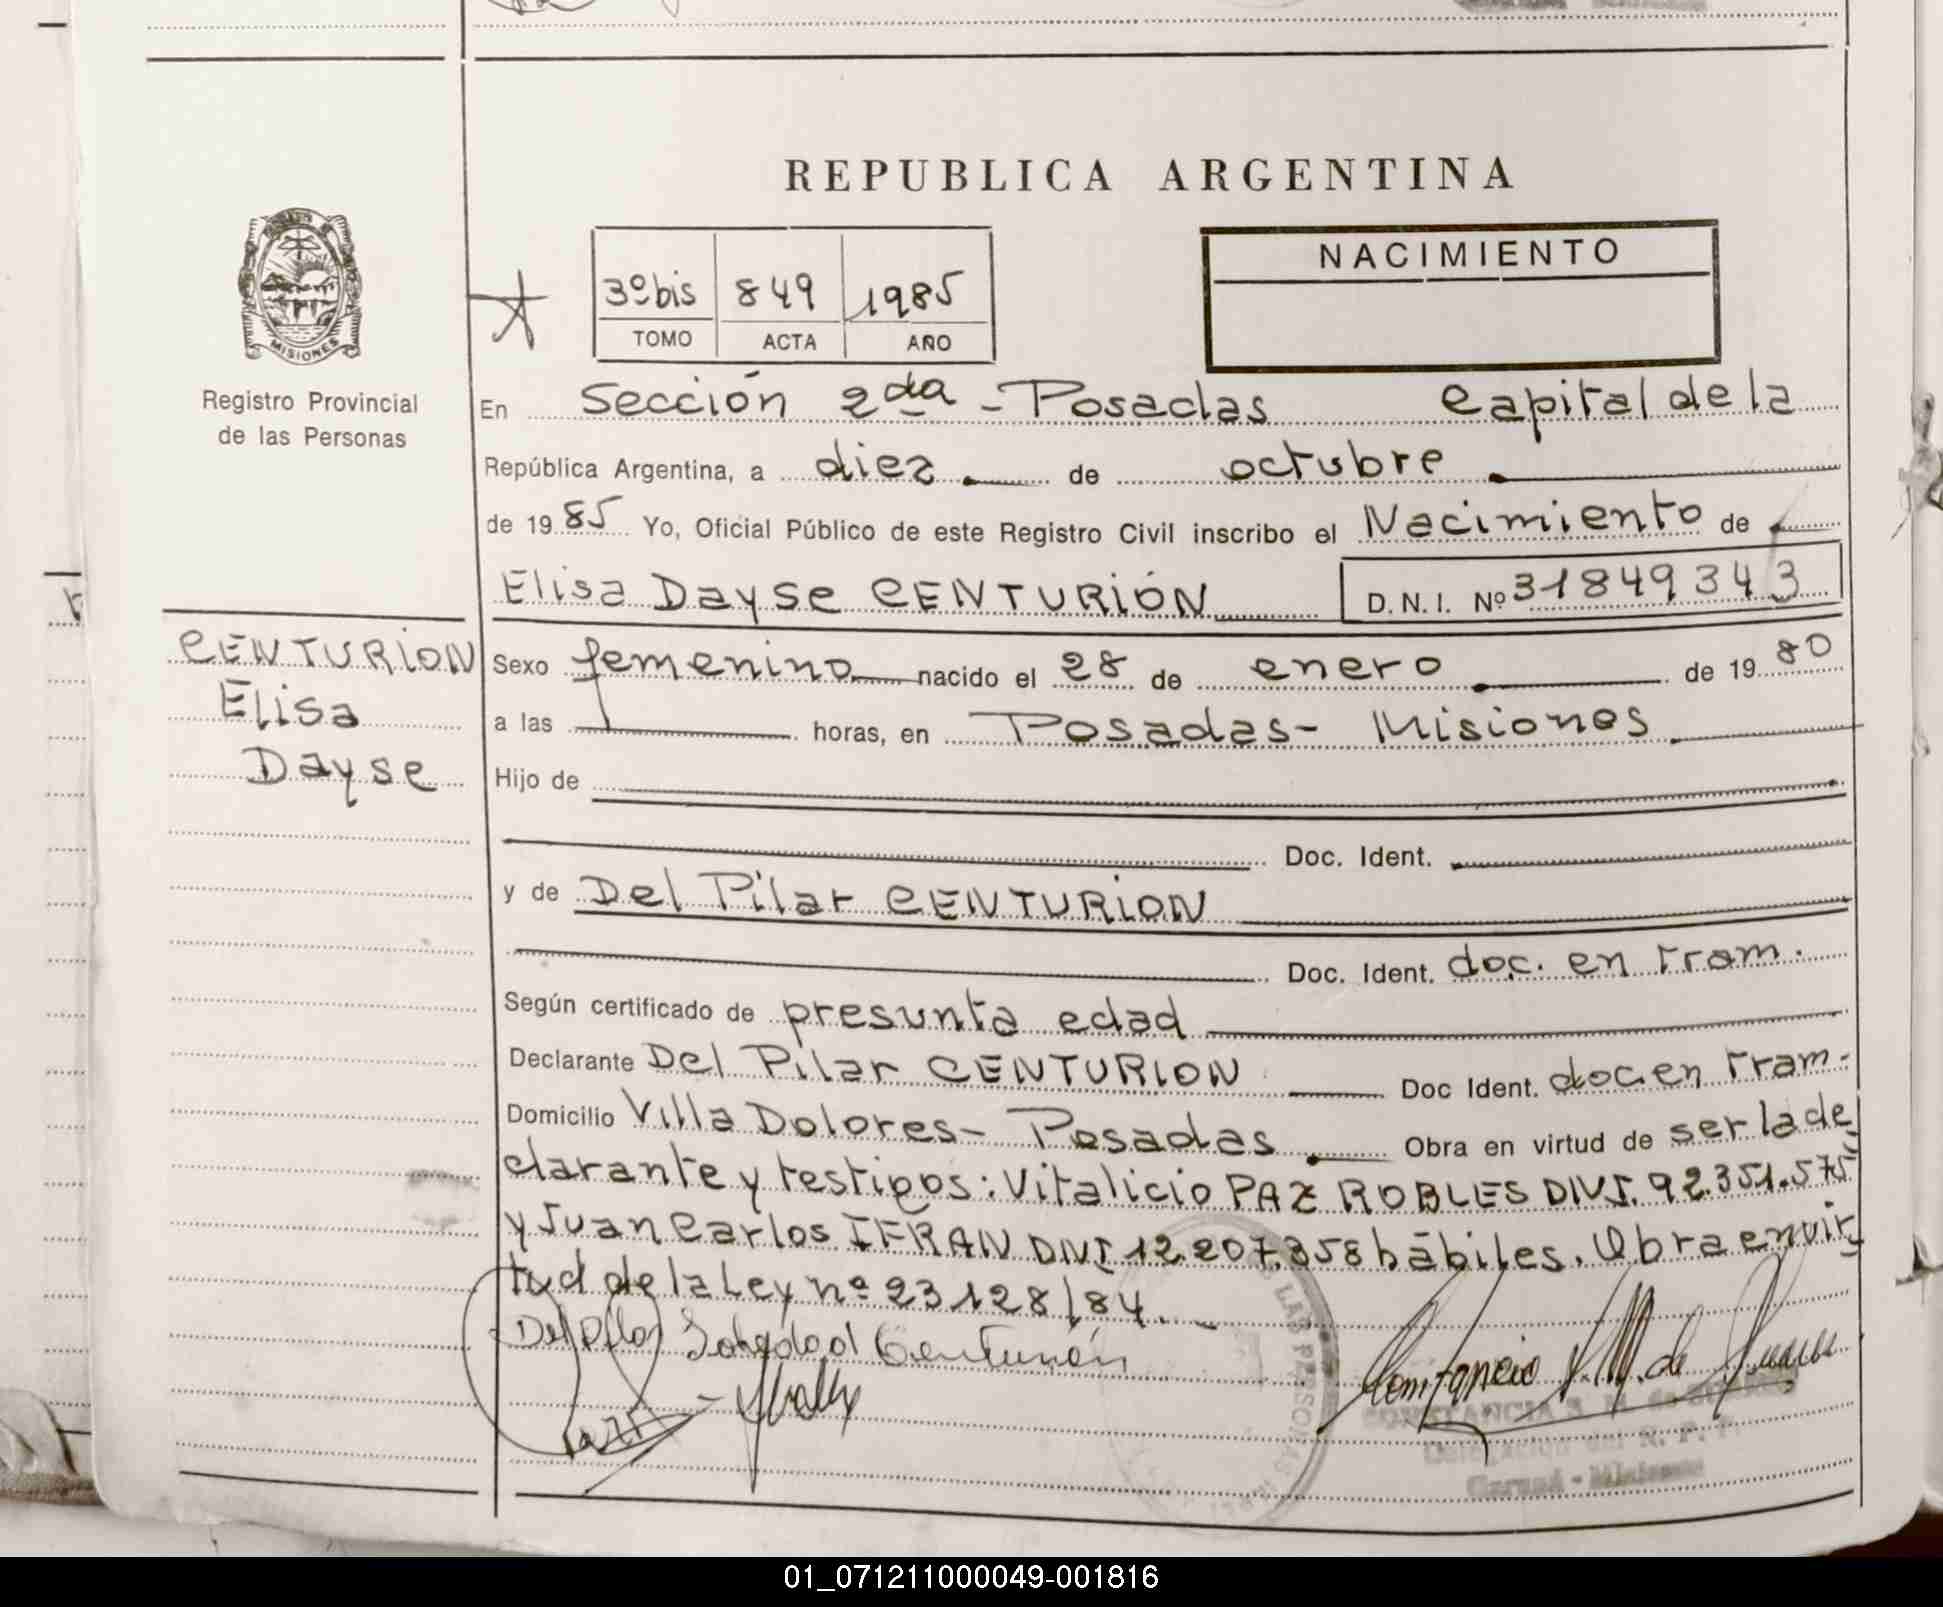 REPUBLICA ARGENTINA
MISIONES
Registro Provincial
de las Personas
3º bis 849 1985
TOMO ACTA AÑO
NACIMIENTO
En Sección 2da - Posadas Capital de la
República Argentina, a diez de octubre
de 1985 Yo, Oficial Público de este Registro Civil inscribo el Nacimiento de
Elisa Dayse CENTURIÓN D.N.I. Nº 31849343
CENTURION
Elisa
Dayse
Sexo femenino nacido el 28 de enero de 1980
a las horas, en Posadas - Misiones
Hijo de
Doc. Ident.
y de Del Pilar CENTURION
Doc. Ident. doc. en tram.
Según certificado de presunta edad
Declarante Del Pilar CENTURION Doc Ident. doc en tram-
Domicilio Villa Dolores - Posadas Obra en virtud de ser la de
clarante y testigos: Vitalicio PAZ ROBLES DNI. 92.351.575
y Juan Carlos IFRAN DNI 12.207.358 hábiles. Obra en vir
tud de la Ley nº 23128/84.
Del Pilar Soledad Centurión
LAS PERSONAS
CONSTANCIA
Misiones
01_071211000049-001816